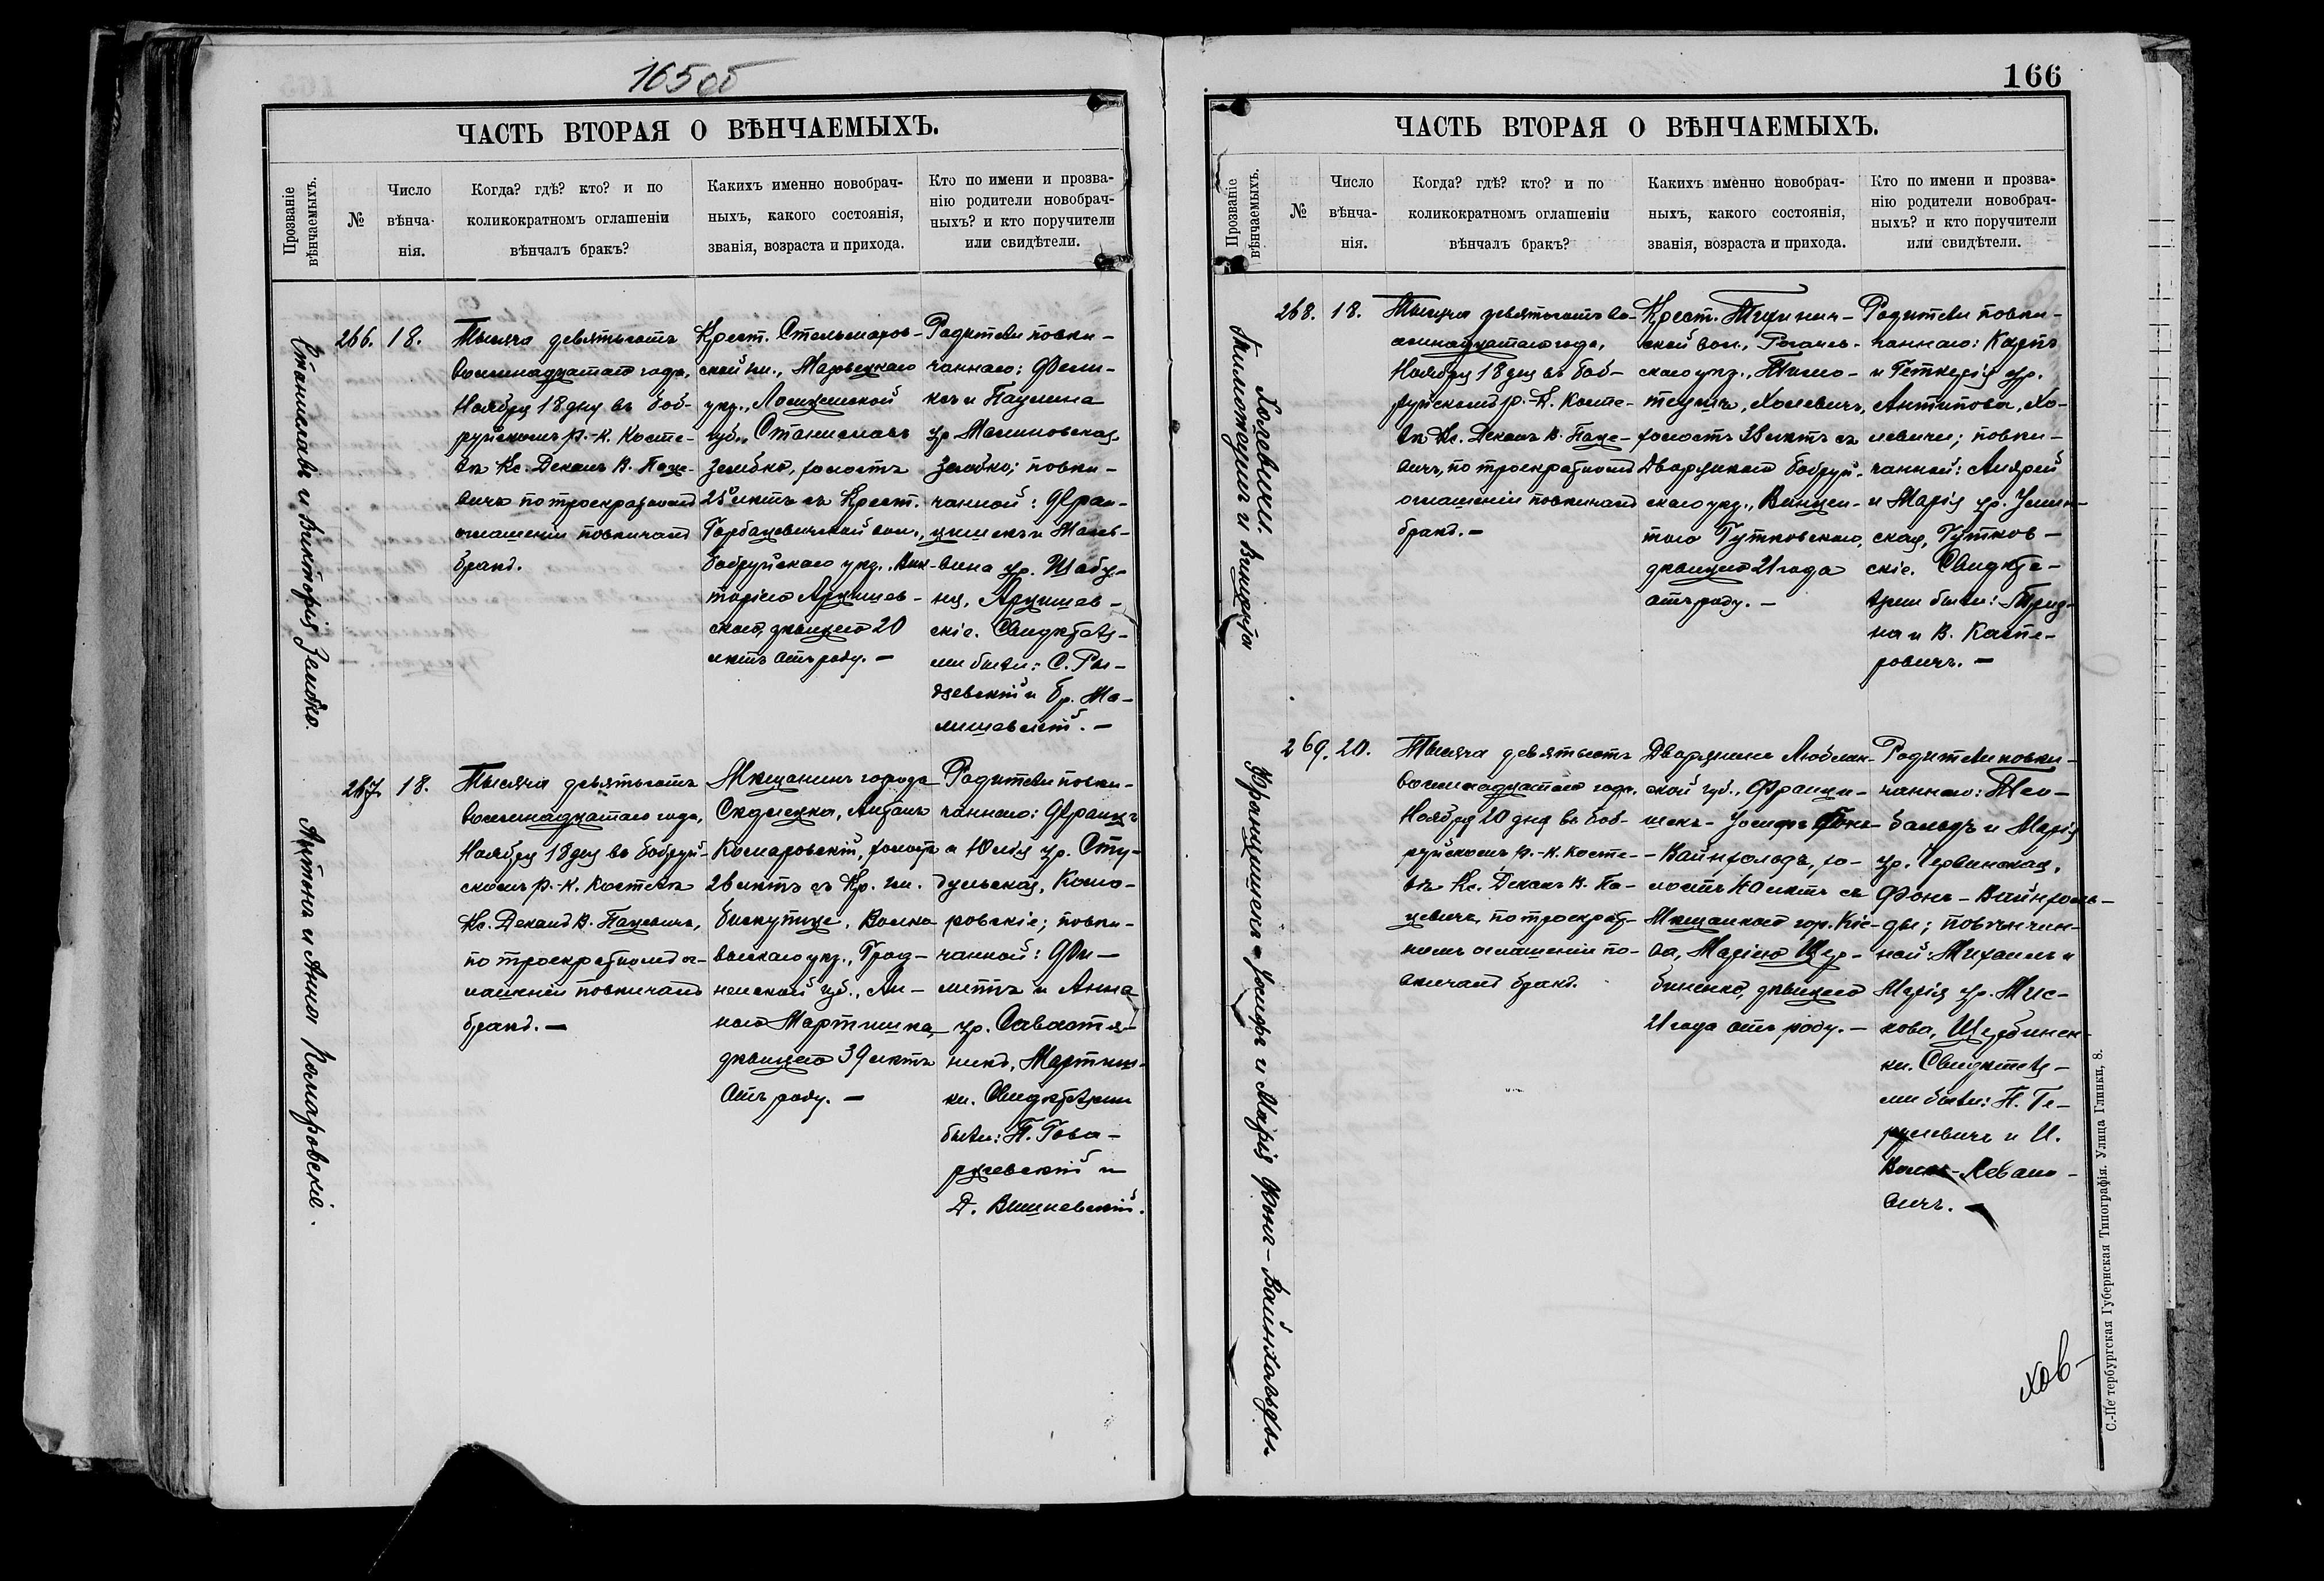 165 об
ЧАСТЬ ВТОРАЯ О ВѢНЧАЕМЫХЪ.
Прозваніе
вѣнчаемыхъ.
№
Число
вѣнча-
нія.
Когда? гдѣ? кто? и по
коликократномъ оглашеніи
вѣнчалъ бракъ?
Какихъ именно новобрач-
ныхъ, какого состоянія,
званія, возраста и прихода.
Кто по имени и прозва-
нію родители новобрач-
ныхъ? и кто поручители
или свидѣтели.
Станиславъ и Викторія Зембко.
266.
18.
Тысяча девятьсотъ
восемнадцатаго года,
Ноября 18 дня въ Боб-
руйскомъ р.-к. Косте-
лѣ Кс. Деканъ В. Паце-
вичъ по троекратномъ
оглашеніи повѣнчалъ
бракъ.
Крест.
ской гм., Мазовецкаго
уѣз., Ломжинской
губ., Станиславъ
Зембко, холостъ
25 лѣтъ съ Крест.
Горбацевичской вол.,
Бобруйскаго уѣз., Вик-
торіею
скою, дѣвицею 20
лѣтъ отъ роду. —
Родители повѣн-
чаннаго: Фели-
ксъ и Паулина
ур. Малиновская,
Зембко; повѣн-
чанной: Фран-
цишекъ и
вина ур.
скіе. Свидѣтеля-
ми были: С.
и Бр. Ма-
лишевскій. —
Антонъ и Анна Комаровскіе.
267.
18.
Тысяча девятьсотъ
восемнадцатаго года,
Ноября 18 дня въ Бобруй-
скомъ р.-к. Костелѣ
Кс. Деканъ В. Пацевичъ,
по троекратномъ ог-
лашеніи повѣнчалъ
бракъ. —
Мѣщанинъ города
Антонъ
Комаровскій, холостъ
26 лѣтъ съ Кр. гм.
Бискупице, Волко-
выскаго уѣз., Грод-
ненской губ., Ан-
ною Мартишка,
дѣвицею 39 лѣтъ
отъ роду. —
Родители повѣн-
чаннаго: Францъ
и Юлія ур. Сту-
дульская, Кома-
ровскіе; повѣн-
чанной:
и Анна
ур.
Мартиш-
ки. Свидѣтелями
были: П.
и
Д. Вишневскій.
166
ЧАСТЬ ВТОРАЯ О ВѢНЧАЕМЫХЪ.
Прозваніе
вѣнчаемыхъ.
№
Число
вѣнча-
нія.
Когда? гдѣ? кто? и по
коликократномъ оглашеніи
вѣнчалъ бракъ?
Какихъ именно новобрач-
ныхъ, какого состоянія,
званія, возраста и прихода.
Кто по имени и прозва-
нію родители новобрач-
ныхъ? и кто поручители
или свидѣтели.
Холевичи.
и
268.
18.
Тысяча девятьсотъ во-
семнадцатаго года,
Ноября 18 дня въ Боб-
руйскомъ р.-к. Косте-
лѣ Кс. Деканъ В. Паце-
вичъ, по троекратномъ
оглашеніи повѣнчалъ
бракъ. —
Крест. Тихинич-
ской вол., Рогачев-
скаго уѣз., Тимо-
Холевичъ,
холостъ 38 лѣтъ съ
Дворянкою Бобруй-
скаго уѣз., Винцен-
тою Гутковскою,
дѣвицею 21 года
отъ роду. —
Родители повѣн-
чаннаго: Карпъ
и ур.
Антипова, Хо-
левичи; повѣн-
чанной: Андрей
и Марія ур.
ская, Гутков-
скіе. Свидѣте-
лями были:
и В. Каспе-
ровичъ. —
Францишекъ-Іосифъ и Марія Фонъ-Вайнхольды
269.
20.
Тысяча девятьсотъ
восемнадцатаго года,
Ноября 20 дня въ Боб-
руйскомъ р.-к. Косте-
лѣ Кс. Деканъ В. Па-
цевичъ, по троекрат-
номъ оглашеніи по-
вѣнчалъ бракъ.
Дворянинъ Люблин-
ской губ., Франци-
шекъ-Іосифъ Фонъ-
-Вайнхольдъ, хо-
лостъ 40 лѣтъ съ
Мѣщанкою гор. Кіе-
ва, Маріею Щер-
биненко, дѣвицею
21 года отъ роду. —
Родители повѣн-
чаннаго: Тео-
бальдъ и Марія
ур. Червинская,
Фонъ-Вайнхоль-
ды; повѣнчан-
ной: Михаилъ и
Марія ур. Мис-
кова, Щербинен-
ки. Свидѣтеля-
ми были: П.
и И.
вичъ. —
С.-Петербургская Губернская Типографія. Улица Глинки, 8.